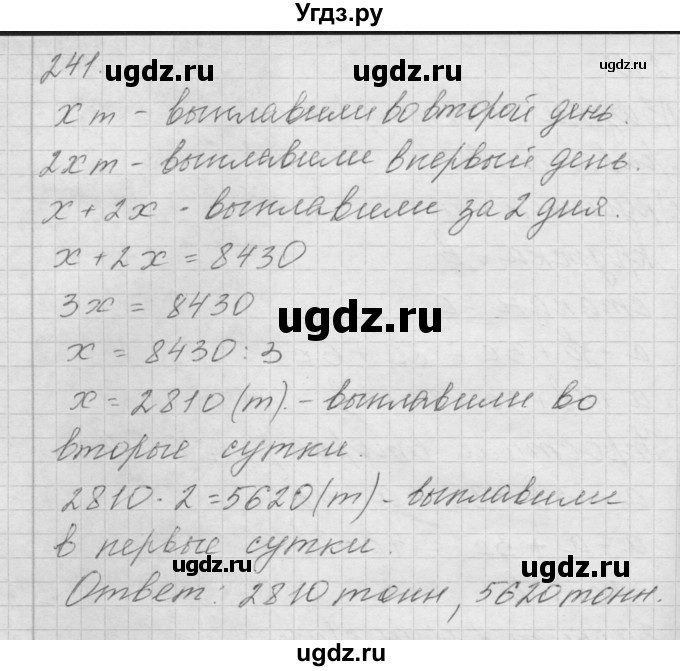 Угдз.ру
241.
ugdz.ru ugdz.ru ugdz.ru
x т - выплавили во второй день.
2x т - выплавили в первый день.
x + 2x - выплавили за 2 дня.
ugdz.ru ugdz.ru
x + 2x = 8430
3x = 8430
ugdz.ru
x = 8430 : 3
x = 2810 (т). - выплавили во
вторые сутки.
ugdz.ru ugdz.ru
2810 · 2 = 5620 (т) - выплавили
в первые сутки.
ugdz.ru ugdz.ru
Ответ: 2810 тонн, 5620 тонн.
ugdz.ru